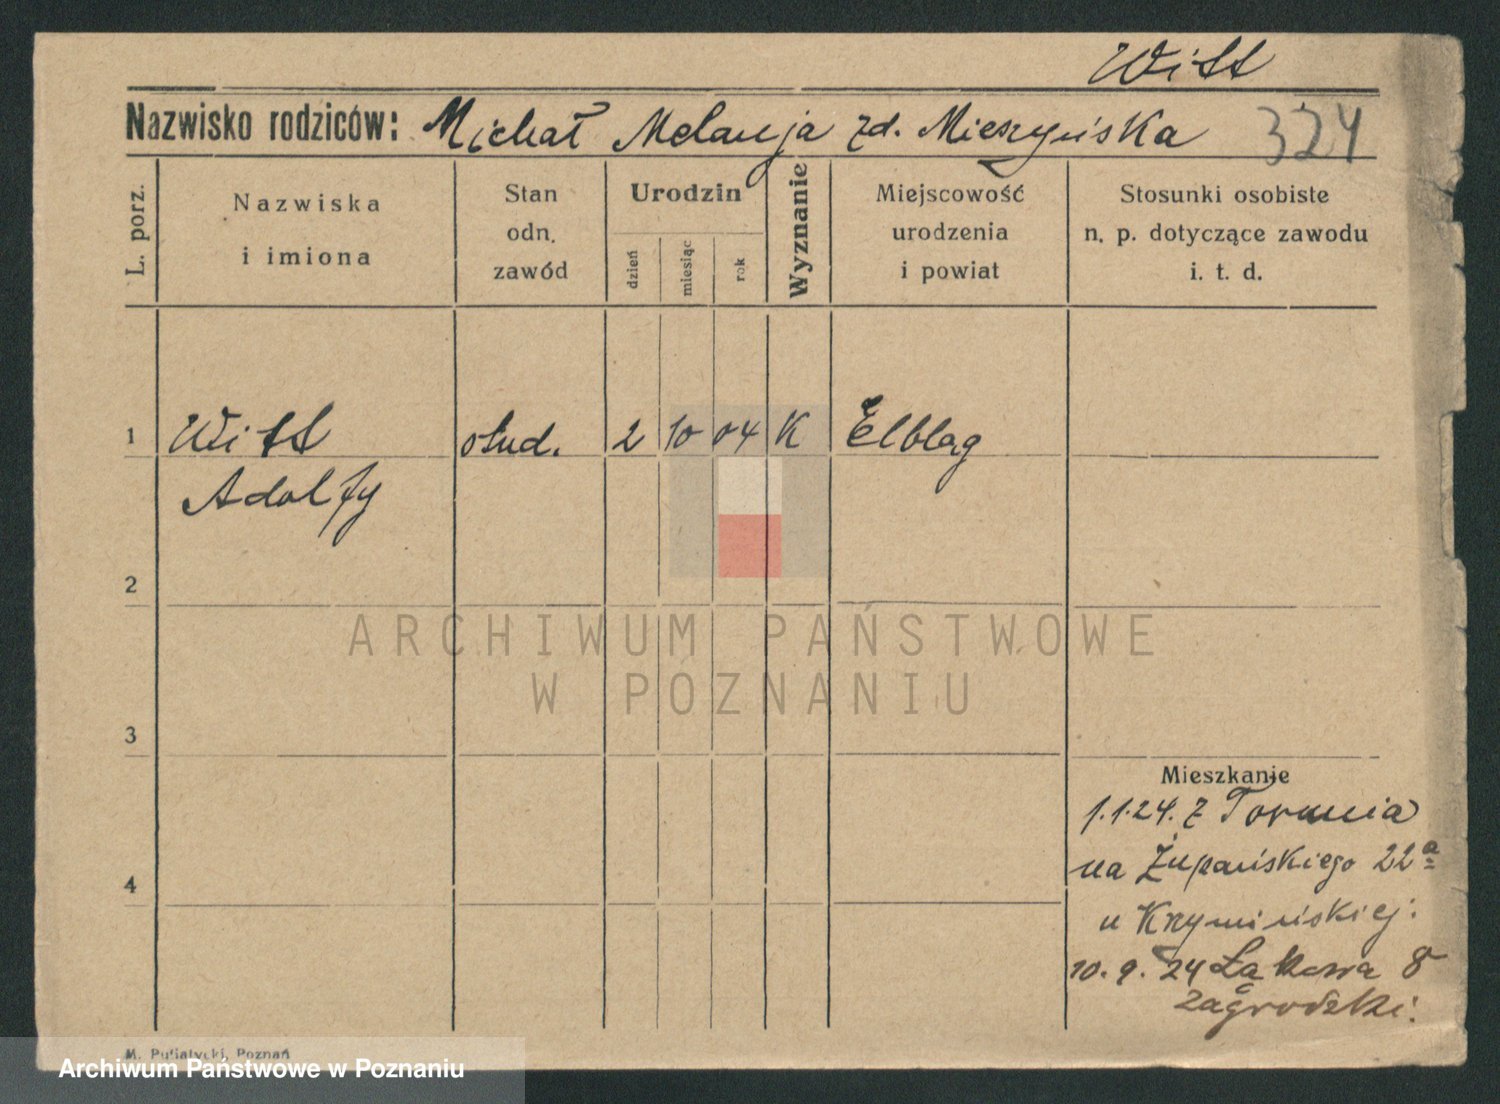 Witt
Nazwisko rodziców: Michał Melanja zd. Mieszyńska 324
L. porz.
Nazwiska
i imiona
Stan
odn.
zawód
Urodzin
dzień
miesiąc
rok
Wyznanie
Miejscowość
urodzenia
i powiat
Stosunki osobiste
n. p. dotyczące zawodu
i. t. d.
1 Witt stud. 2 10 04 K Elbląg
Adolfy
2
ARCHIWUM PAŃSTWOWE
W POZNANIU
3
Mieszkanie
1.1.24. z Torunia
na Żupańskiego 22a
4
u Krzymińskiej.
10.9.24 Łąkowa 8
Zagrodzki.
M. Putiatycki, Poznań
Archiwum Państwowe w Poznaniu